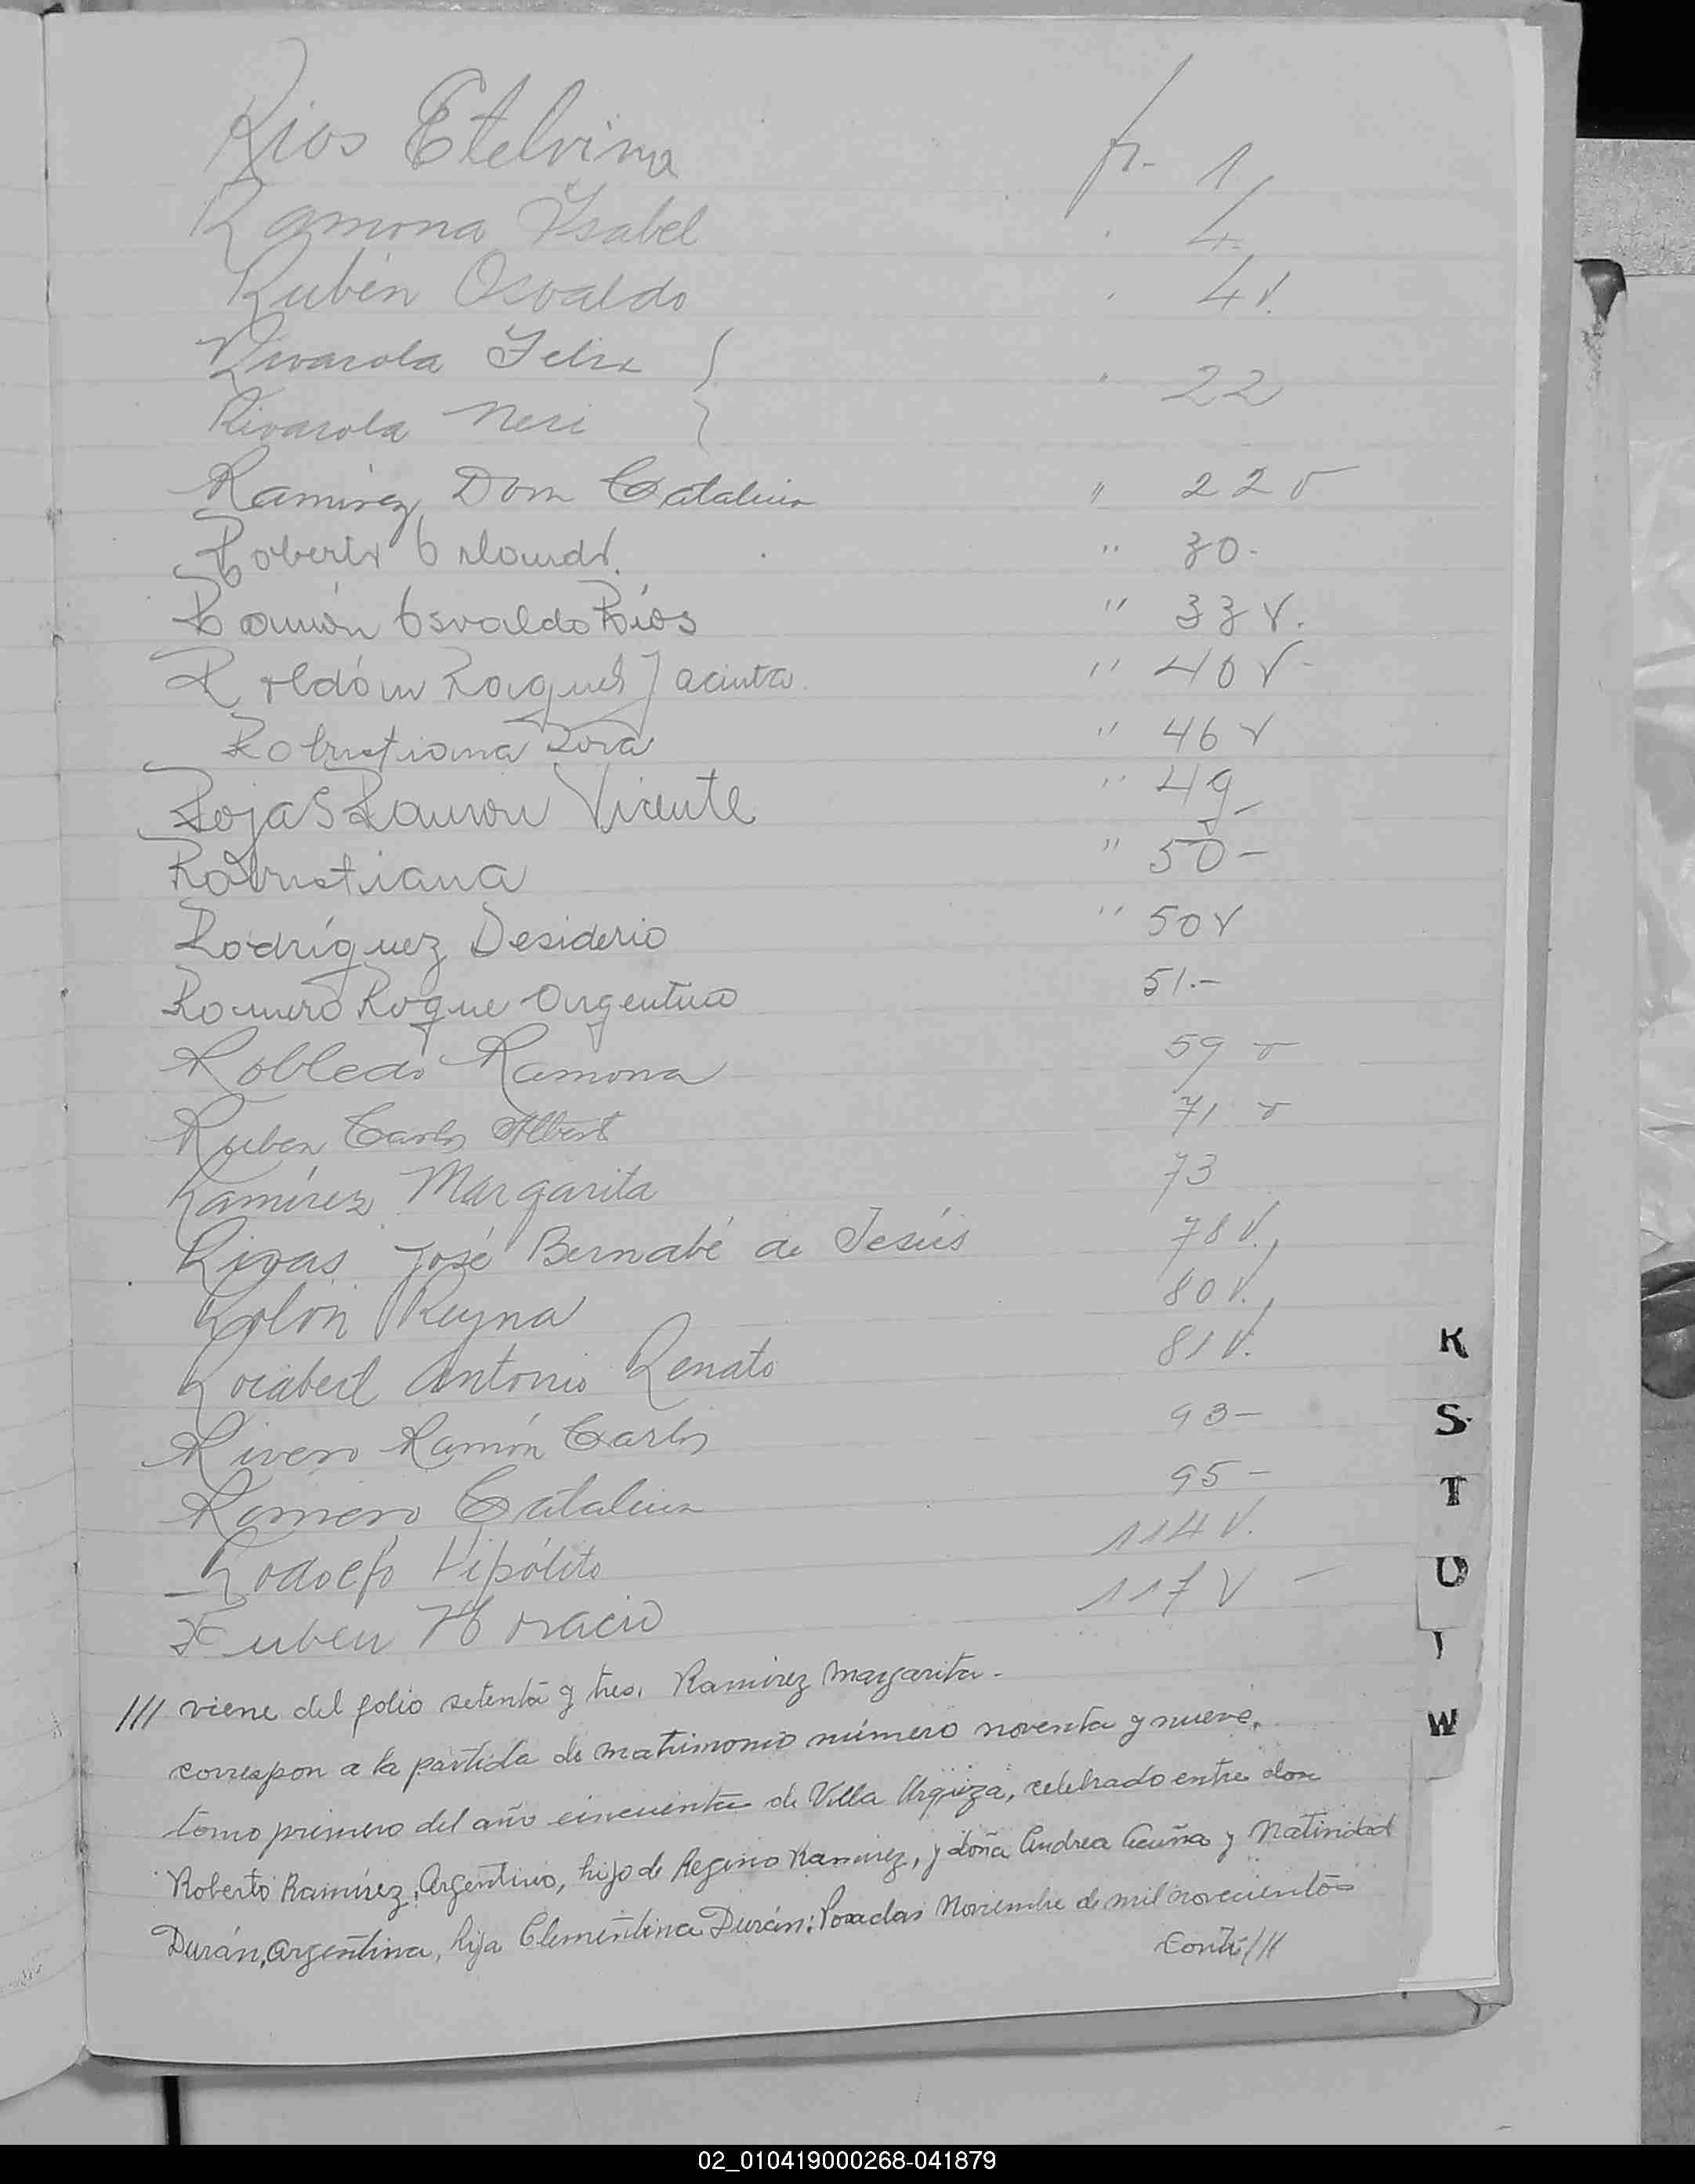 Rios Etelvina fs. 1
Ramona Ysabel " 4
Rubén Osvaldo " 4 v.
Rivarola Felix } " 22
Rivarola Neri }
Ramirez, Dom Catalina " 22 v
Roberto Orlando. " 30-
Ramón Osvaldo Ríos " 33 v.
Roldán Raquel Jacinta " 40 v-
Robustiana Dora " 46 v
Rojas Ramon Vicente " 49-
Robustiana " 50-
Rodríguez Desiderio " 50 v
Romero Roque Argentino 51.-
Robledo Ramona 59 v
Ruben Carlos Albert 71 v
Ramírez Margarita 73
Rivas José Bernabé de Jesús 78 v.
Rolón Reyna 80 v.
Antonio Renato 81 v.
Rivero Ramón Carlos 93-
Romero Catalina 95-
Rodolfo Hipólito 114 v.
Ruben Horacio 117 v -
/// viene del folio setenta y tres. Ramírez Margarita-
correspon a la partida de matrimonio número noventa y nueve,
tomo primero del año cincuenta de Villa Urquiza, celebrado entre don
Roberto Ramírez, Argentino, hijo de Regino Ramirez, y doña Andrea Acuña y Natividad
Durán, argentina, hija Clementina Durán: Posadas Noviembre de mil novecientos
Conti///
R
S
T
U
W
02_010419000268-041879